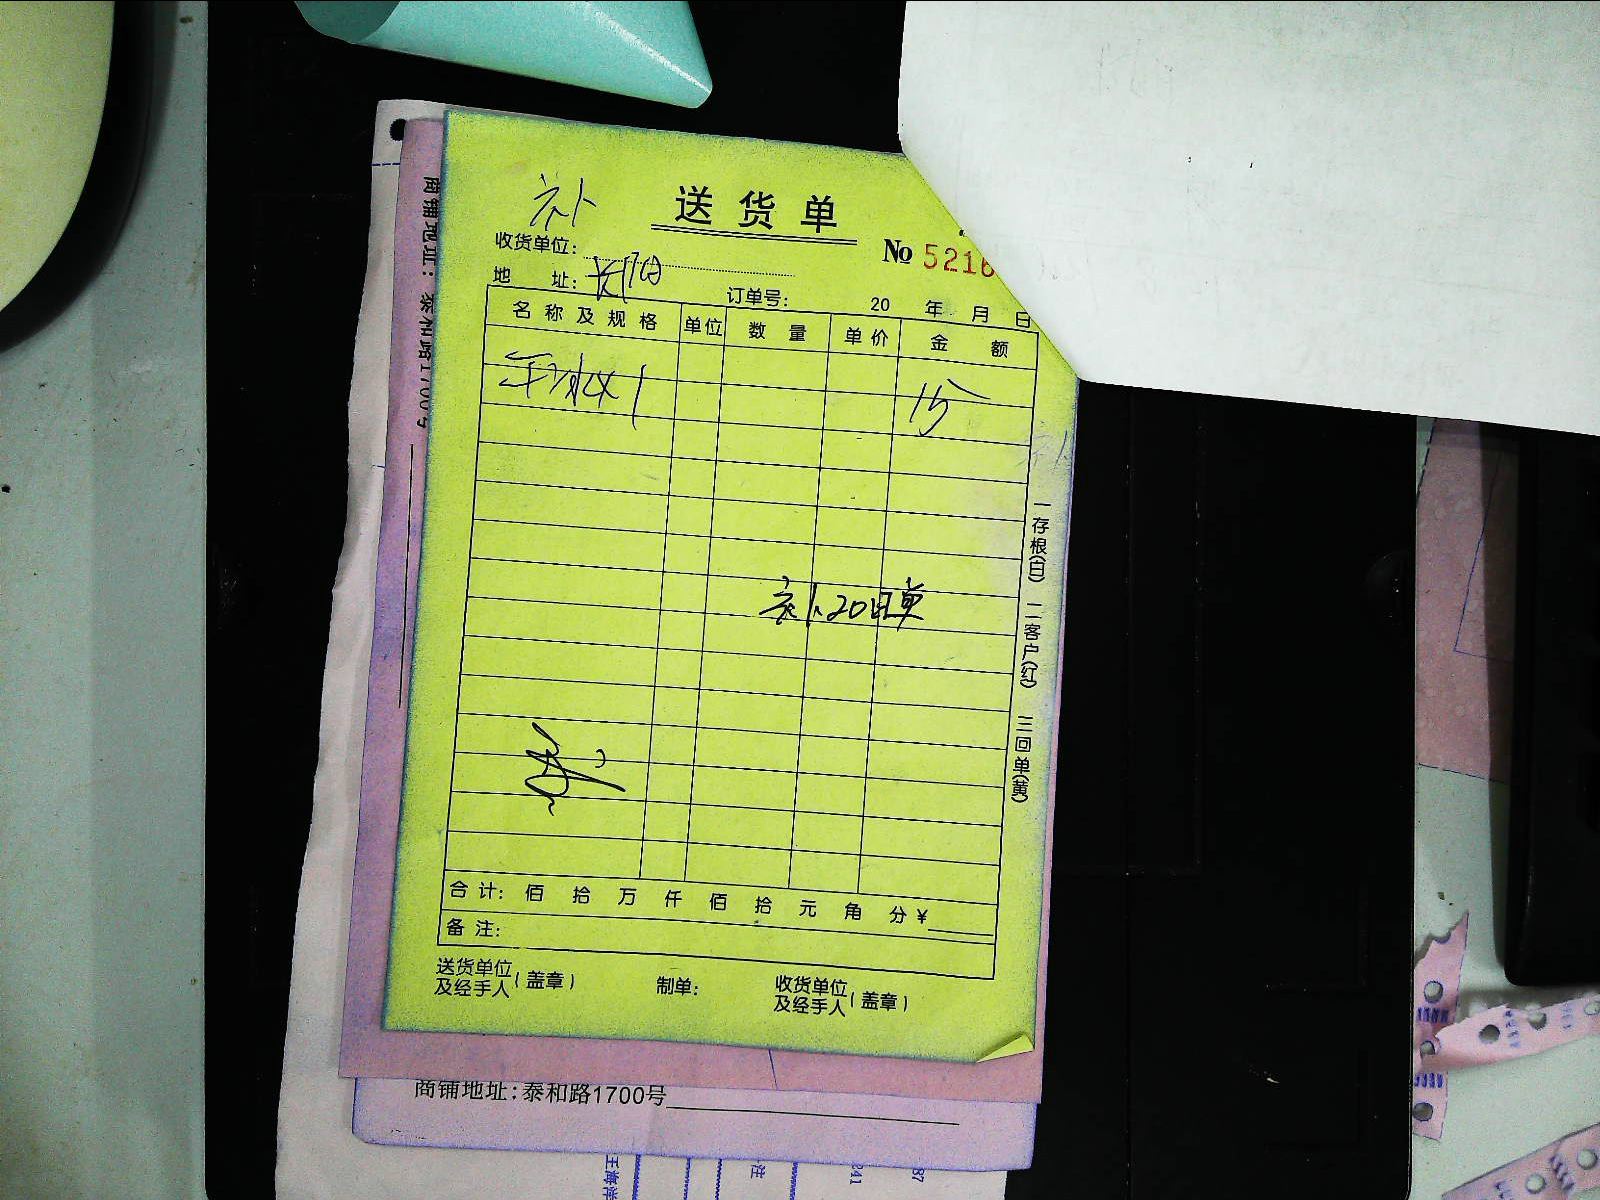 补
送货单
收货单位：
No 5216
地 址：
订单号： 20 年 月 日
名称及规格 单位 数量 单价 金额
15
补20日单
一存根(白) 二客户(红) 三回单(黄)
合计： 佰 拾 万 仟 佰 拾 元 角 分￥
备注：
送货单位及经手人(盖章) 制单： 收货单位及经手人(盖章)
商铺地址：泰和路1700号
商铺地址：泰和路1700号
王海洋
注
341
87